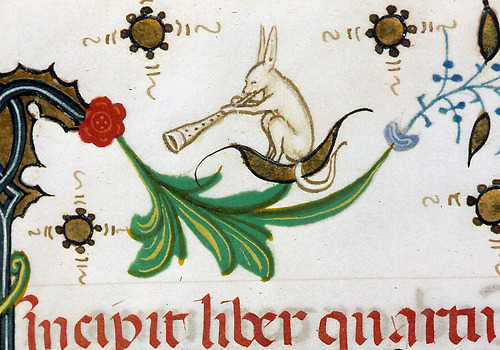 incipit liber quartu